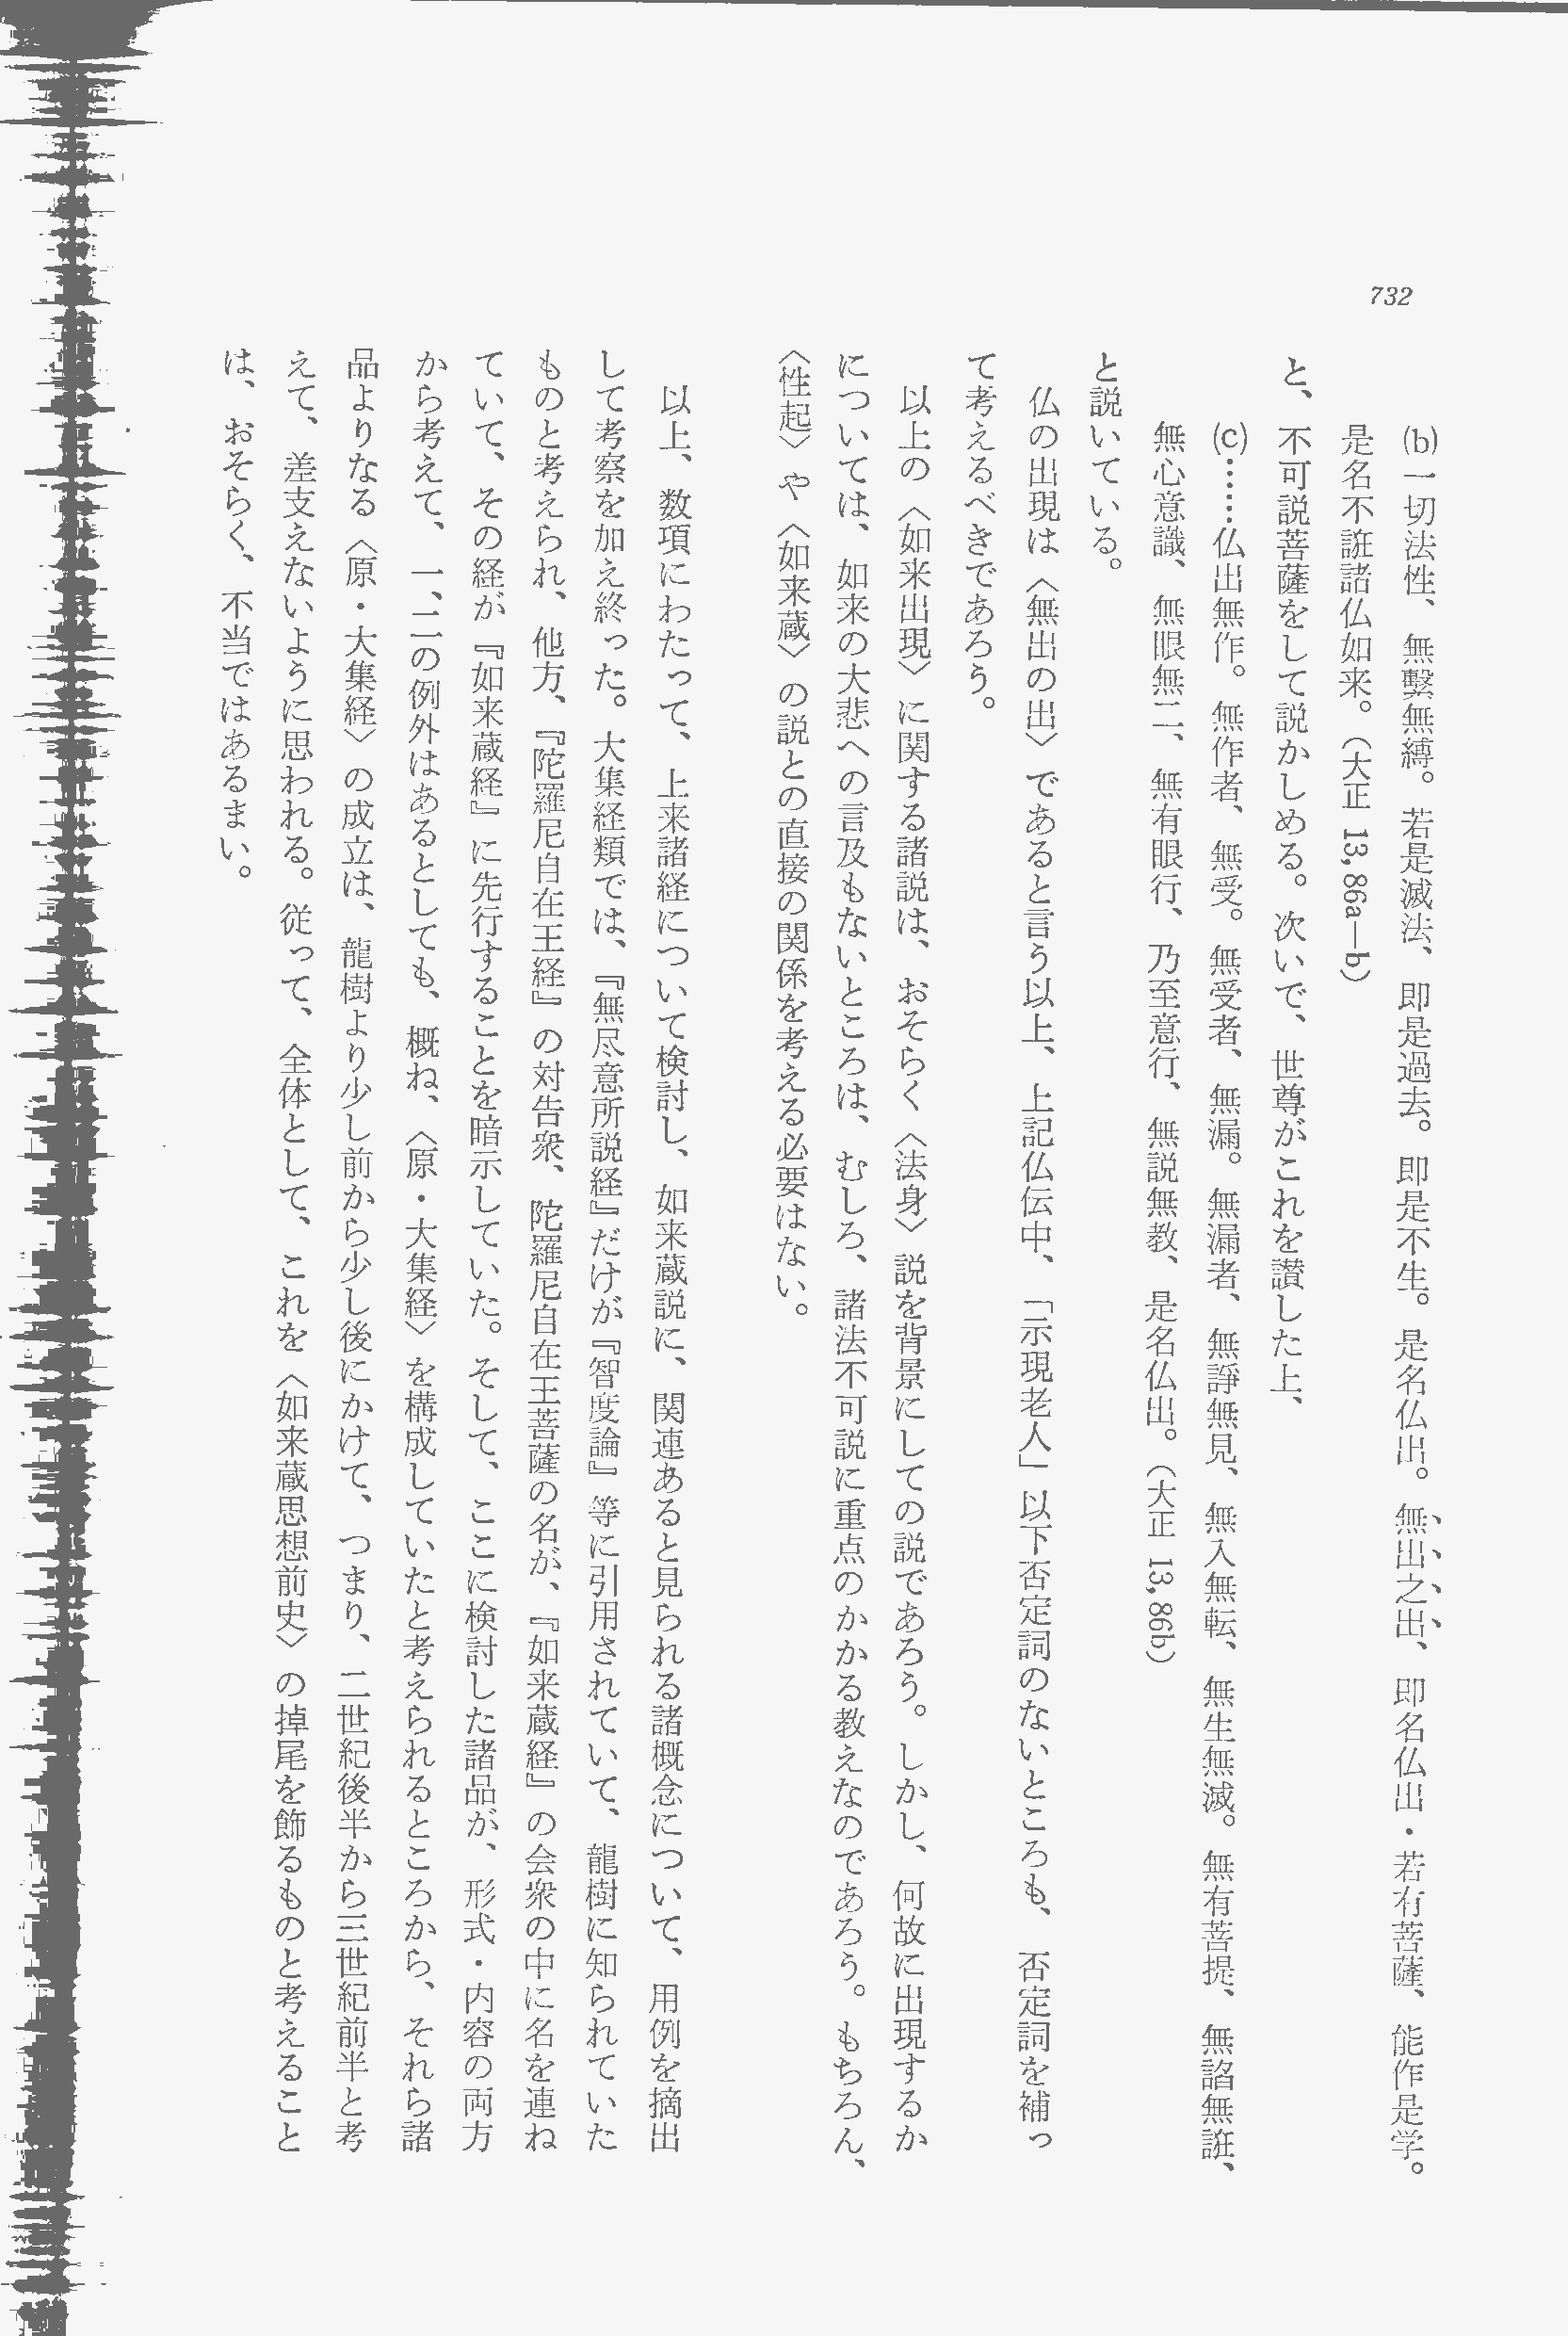 732
(b)一切法性、無繫無縛。若是滅法、即是過去。即是不生。是名仏出。無出之出、即名仏出・若有菩薩、能作是学。
是名不誑諸仏如来。(大正 13, 86a—b)
と、不可説菩薩をして説かしめる。次いで、世尊がこれを讃した上、
(c)……仏出無作。無作者、無受。無受者、無漏。無漏者、無諍無見、無入無転、無生無滅。無有菩提、無諂無誑、
無心意識、無眼無二、無有眼行、乃至意行、無説無教、是名仏出。(大正 13, 86b)
と説いている。
仏の出現は〈無出の出〉であると言う以上、上記仏伝中、「示現老人」以下否定詞のないところも、否定詞を補っ
て考えるべきであろう。
以上の〈如来出現〉に関する諸説は、おそらく〈法身〉説を背景にしての説であろう。しかし、何故に出現するか
については、如来の大悲への言及もないところは、むしろ、諸法不可説に重点のかかる教えなのであろう。もちろん、
〈性起〉や〈如来蔵〉の説との直接の関係を考える必要はない。
以上、数項にわたって、上来諸経について検討し、如来蔵説に、関連あると見られる諸概念について、用例を摘出
して考察を加え終った。大集経類では、『無尽意所説経』だけが『智度論』等に引用されていて、龍樹に知られていた
ものと考えられ、他方、『陀羅尼自在王経』の対告衆、陀羅尼自在王菩薩の名が、『如来蔵経』の会衆の中に名を連ね
ていて、その経が『如来蔵経』に先行することを暗示していた。そして、ここに検討した諸品が、形式・内容の両方
から考えて、一、二の例外はあるとしても、概ね、〈原・大集経〉を構成していたと考えられるところから、それら諸
品よりなる〈原・大集経〉の成立は、龍樹より少し前から少し後にかけて、つまり、二世紀後半から三世紀前半と考
えて、差支えないように思われる。従って、全体として、これを〈如来蔵思想前史〉の掉尾を飾るものと考えること
は、おそらく、不当ではあるまい。